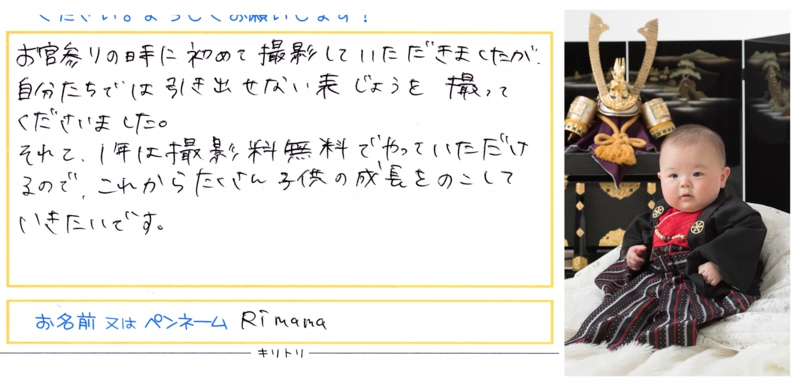 ください。よろしくお願いします！
お宮参りの時に初めて撮影していただきましたが、
自分たちでは引き出せない表じょうを撮って
くださいました。
それて、1年は撮影料無料でやっていただけ
るので、これからたくさん子供の成長をのこして
いきたいです。
お名前又はペンネーム Rimama
キリトリ